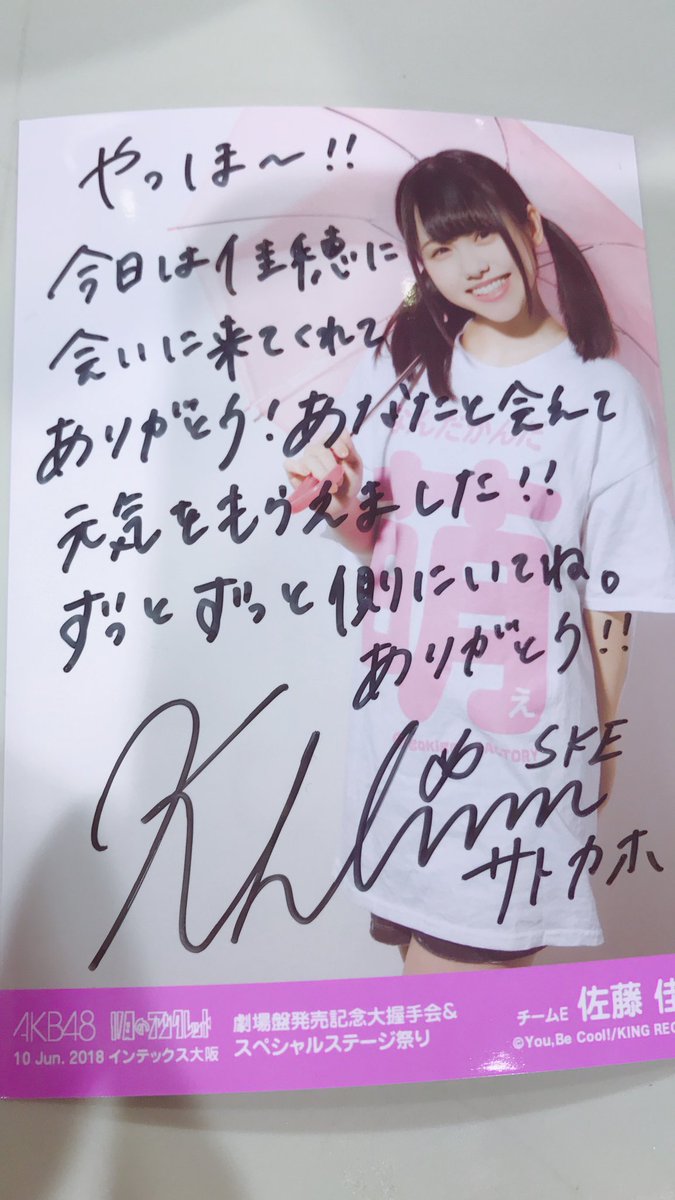 やっほ〜!!
今日は佳穂に
会いに来てくれて
ありがとう!あなたと会えて
元気をもらえました!!
ずっとずっと側にいてね。
ありがとう!!
SKE
サトカホ
なんだかんだ
萌
ぇ
AKB48
劇場盤発売記念大握手会&
スペシャルステージ祭り
10 Jun. 2018 インテックス大阪
チームE 佐藤 佳
©You,Be Cool!/KING REC